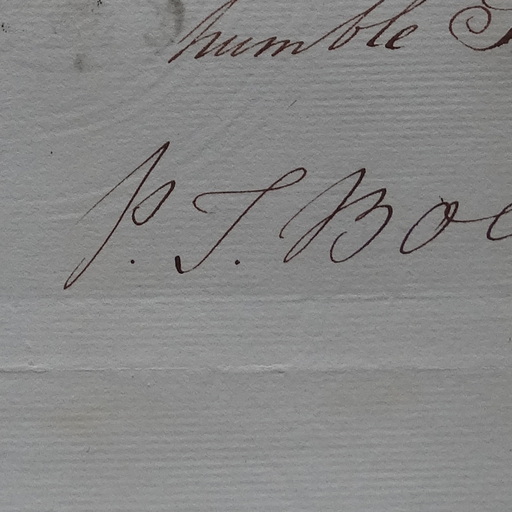 humble
P. T. Boe